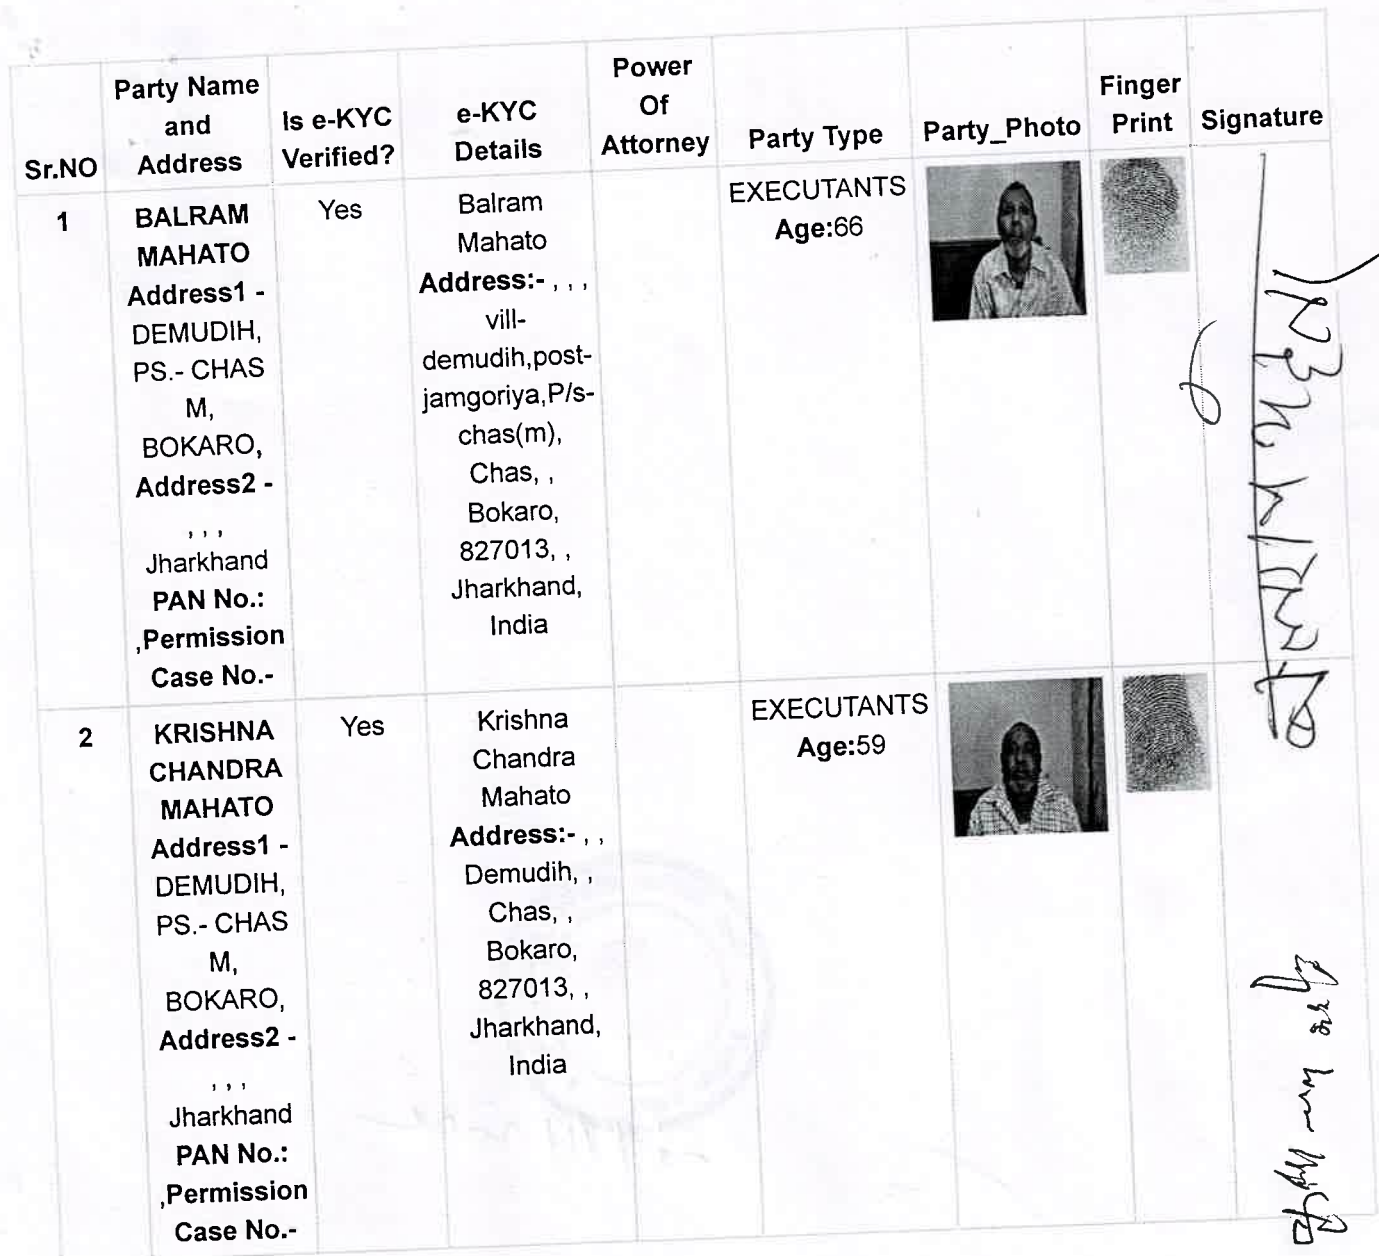 Sr.NO
Party Name
and
Address
Is e-KYC
Verified?
e-KYC
Details
Power
Of
Attorney
Party Type
Party_Photo
Finger
Print
Signature
1
BALRAM
MAHATO
Address1 -
DEMUDIH,
PS.- CHAS
M,
BOKARO,
Address2 -
, , ,
Jharkhand
PAN No.:
,Permission
Case No.-
Yes
Balram
Mahato
Address:- , , ,
vill-
demudih,post-
jamgoriya,P/s-
chas(m),
Chas, ,
Bokaro,
827013, ,
Jharkhand,
India
EXECUTANTS
Age:66
2
KRISHNA
CHANDRA
MAHATO
Address1 -
DEMUDIH,
PS.- CHAS
M,
BOKARO,
Address2 -
, , ,
Jharkhand
PAN No.:
,Permission
Case No.-
Yes
Krishna
Chandra
Mahato
Address:- , ,
Demudih, ,
Chas, ,
Bokaro,
827013, ,
Jharkhand,
India
EXECUTANTS
Age:59